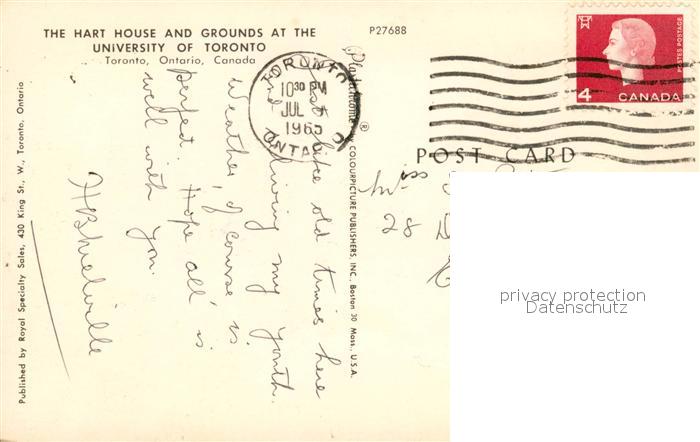 THE HART HOUSE AND GROUNDS AT THE
UNIVERSITY OF TORONTO
Toronto, Ontario, Canada
P27688
TORONTO
10 30 PM
JUL
1965
ONTARIO
4
CANADA
POSTES POSTAGE
POST CARD
Miss
28
Just like old times here
living my youth.
Weather, of course is
perfect. Hope all is
well with you.
Plastichrome ® by COLOURPICTURE PUBLISHERS, INC. Boston 30 Mass., U.S.A.
Published by Royal Specialty Sales, 430 King St., W., Toronto, Ontario
privacy protection
Datenschutz